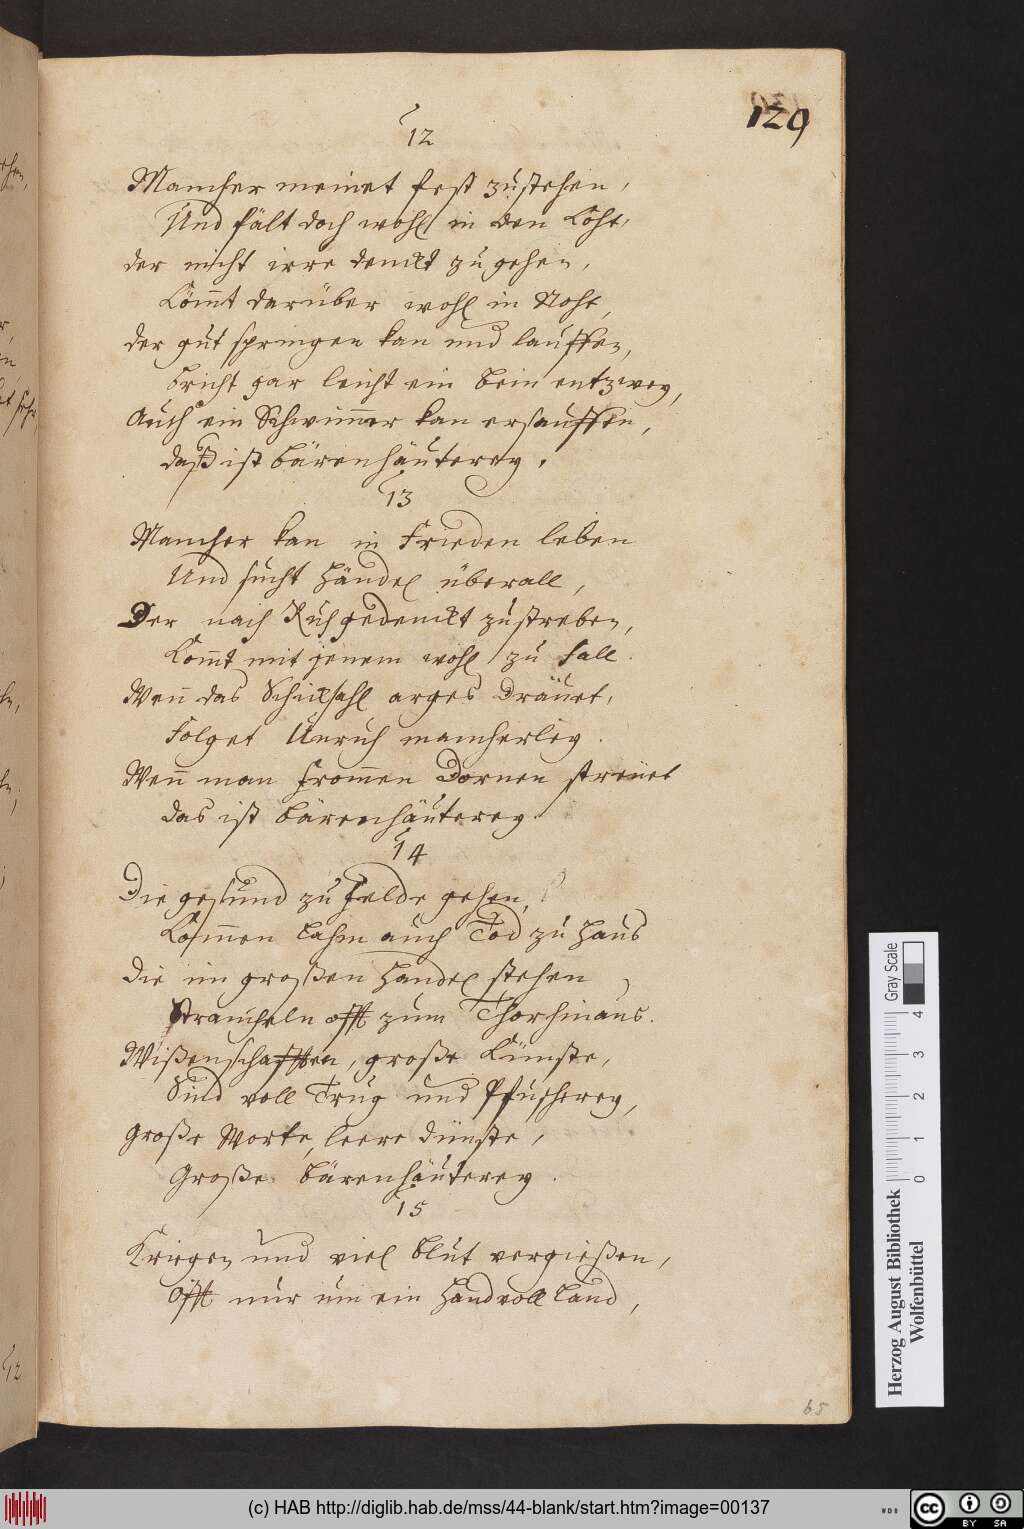 129
12
Mancher meinet fest zustehen,
Und fält doch wohl in den Koht,
der nicht irre denckt zu gehen,
Köm̄t darüber wohl in Noht,
der gut springen kan und lauffen,
bricht gar leicht ein Bein entzwey,
Auch ein Schwim̄er kan ersauffen,
daß ist Bärenhäuterey.
13
Mancher kan in Frieden leben
Und sucht Händel überall,
Der nach Ruh gedenckt zustreben,
Kom̄t mit jenem wohl zu Fall.
Wen̄ das Schicksahl arges dräuet,
Folget Unruh mancherley.
Wen̄ man Frommen Dornen streuet
das ist Bärenhäuterey.
14
Die gesund zu Felde gehen,
Kommen Lahm auch Tod zu Haus
die im großen Handel stehen
Straucheln offt zum Thorhinaus.
Wißenschafften, große Künste,
Sind voll Trug und Pfuscherey,
Große Worte, leere Dünste,
Große Bärenhäuterey.
15
Kriegen und viel Blut vergießen,
Offt nur um ein Handvoll Land,
65
12
Gray Scale
0 1 2 3 4
Herzog August Bibliothek
Wolfenbüttel
(c) HAB http://diglib.hab.de/mss/44-blank/start.htm?image=00137
WDB
cc BY SA